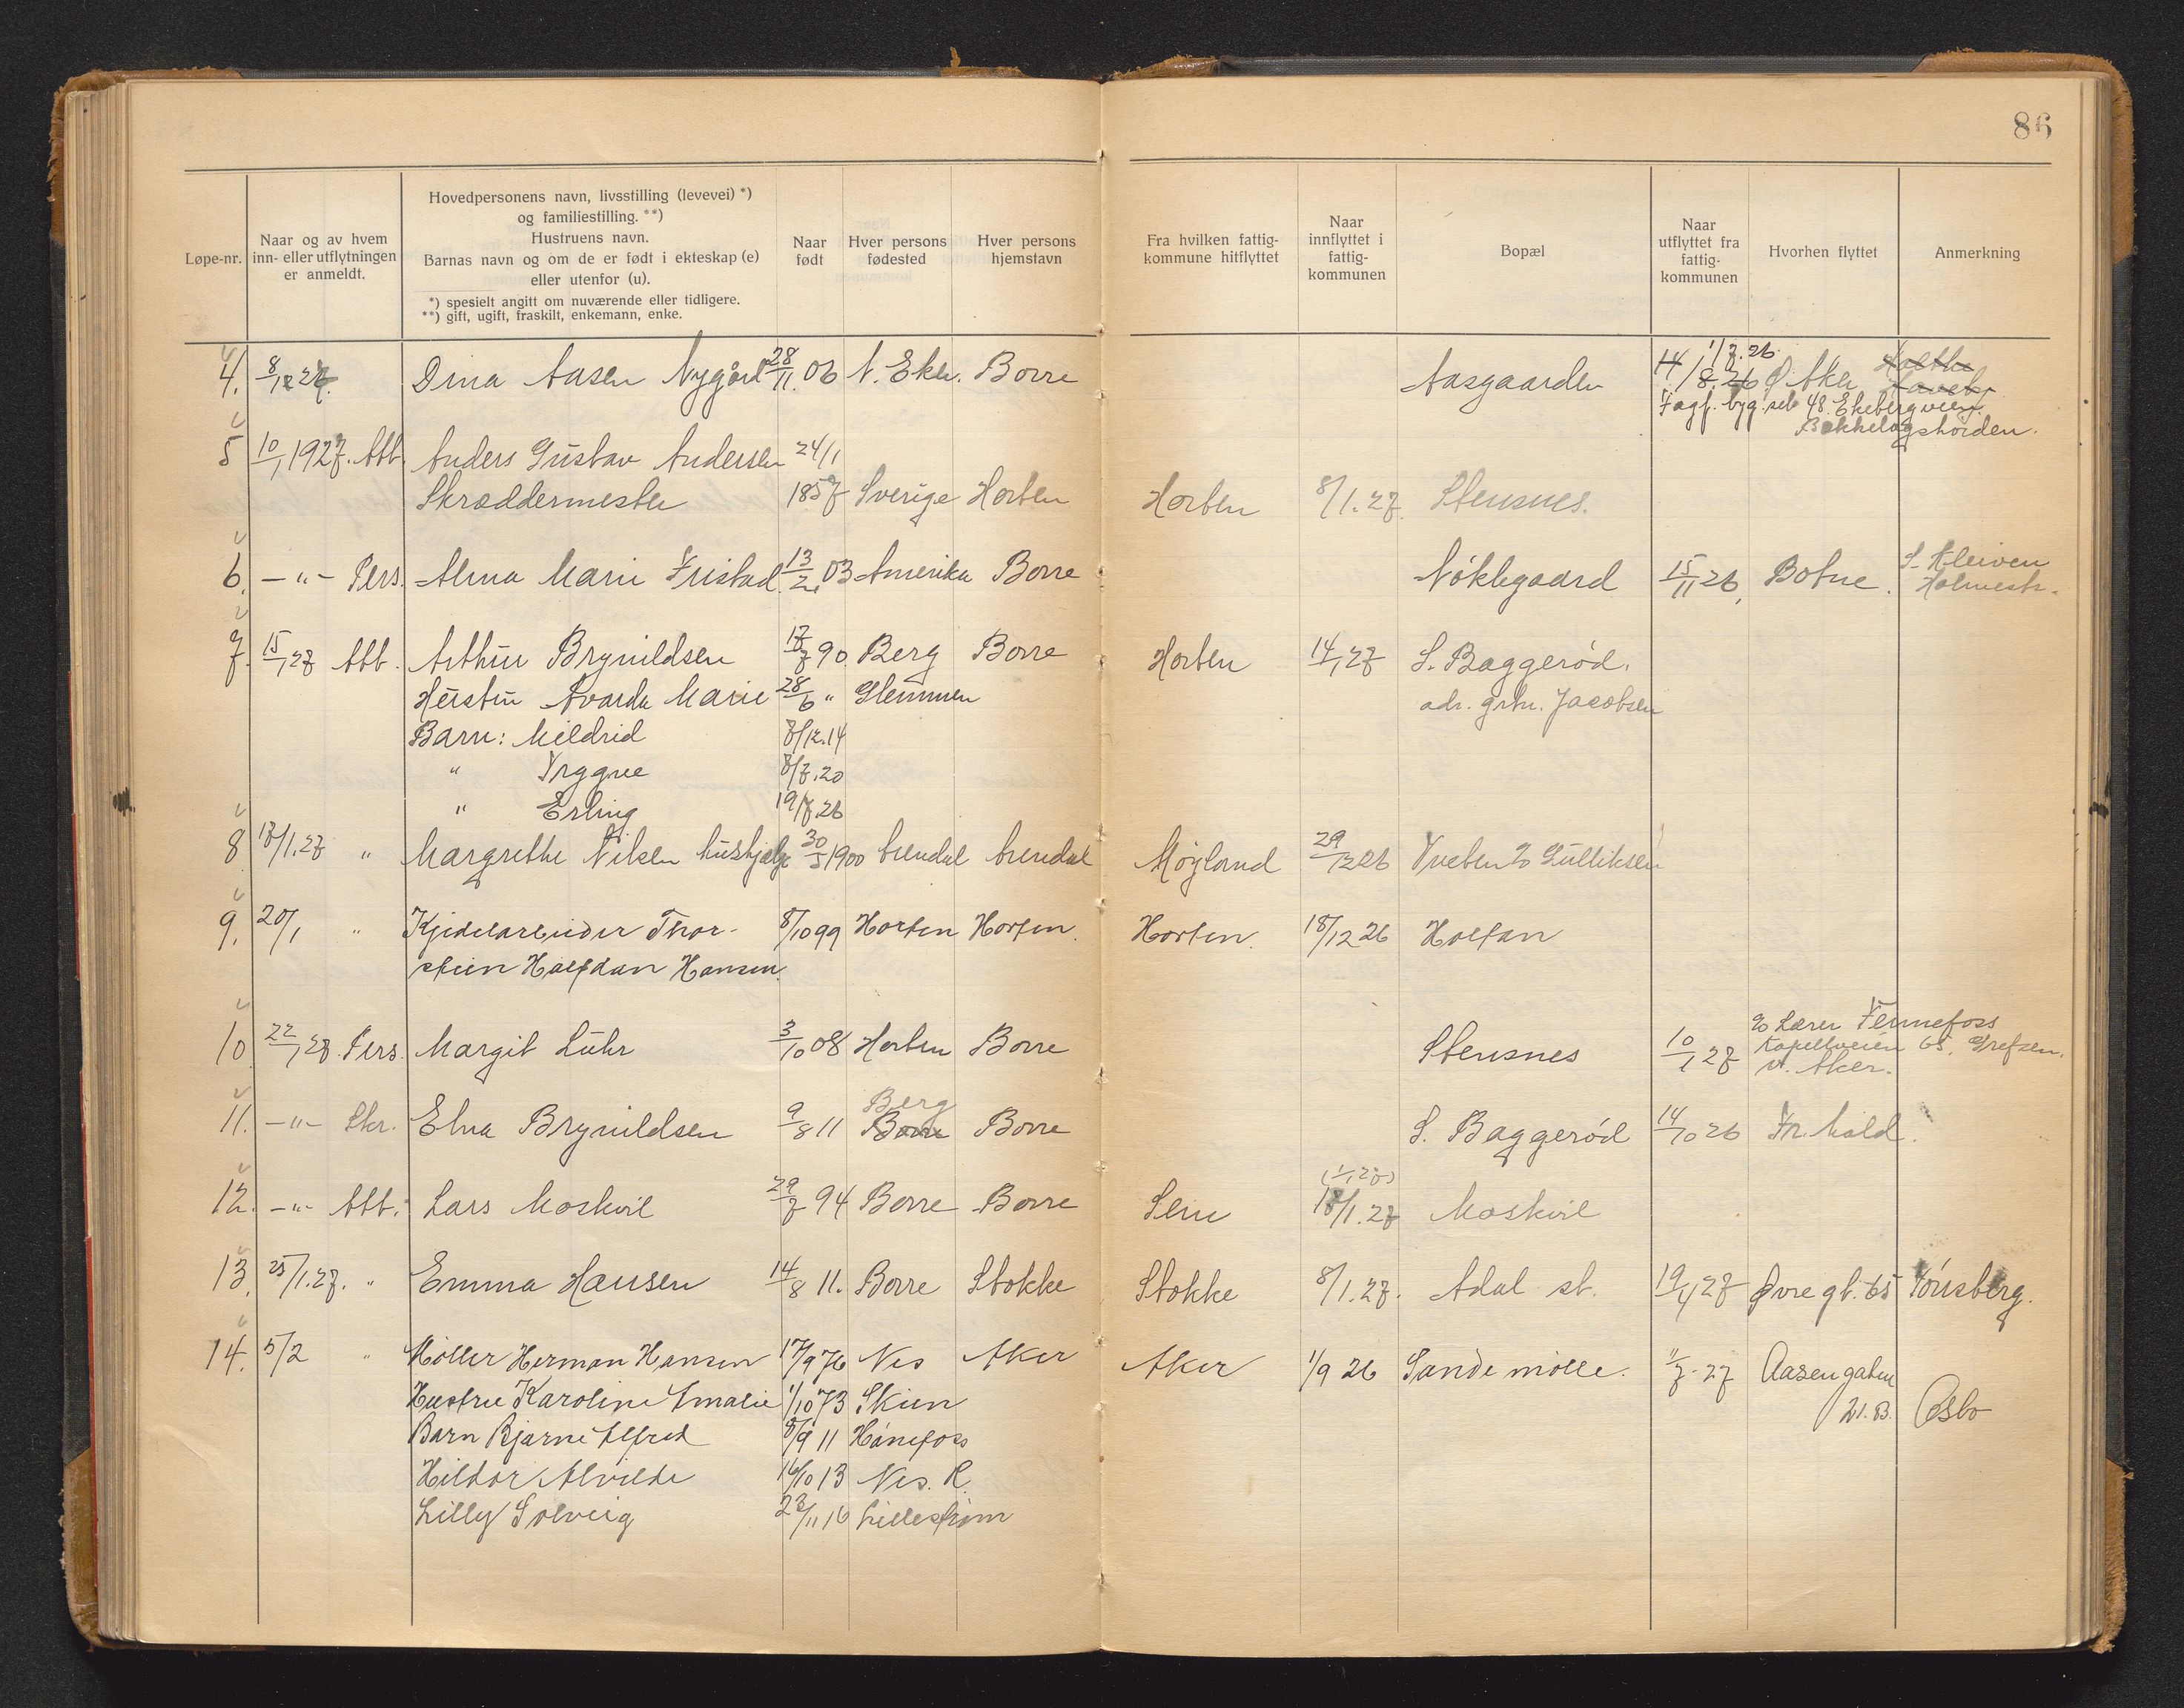 86
Løpe-nr.
Naar og av hvem
inn- eller utflytningen
er anmeldt.
Hovedpersonens navn, livsstilling (levevei) *)
og familiestilling. **)
Hustruens navn.
Barnas navn og om de er født i ekteskap (e)
eller utenfor (u).
*) spesielt angitt om nuværende eller tidligere.
**) gift, ugift, fraskilt, enkemann, enke.
Naar
født
Hver persons
fødested
Hver persons
hjemstavn
Fra hvilken fattig-
kommune hitflyttet
Naar
innflyttet i
fattig-
kommunen
Bopæl
Naar
utflyttet fra
fattig-
kommunen
Hvorhen flyttet
Anmerkning
4. Dina Aasen Nygård 28/11 06 N. Eker. Borre Aasgaarden 1/7.26. Ø Aker
48. Ekebergveien
Bekkelagshøiden.
5 10/1 1927. Att. Anders Gustav Andersen 24/1
Skræddermester 1857 Sverige Horten Horten 8/1.27. Stensnes.
6. -"- Pers. Alma Marie Fristad 13/2 03 Amerika Borre Nøklegaard 15/11 26, Botne. S. Kleiven
Holmestr.
7. 15/1 27 Att. Arthur Brynildsen 17/7 90 Berg Borre Horten 14/1 27 S. Baggerød.
Hustru Avarda Marie 28/6 " Glemmen adr. grtn. Jacobsen
Barn: Mildrid 8/12.14
" Tryggve 8/7.20
" Erling 19/7.26
8 17/1.27 " Margrethe Nilsen hushjelp 30/5 1900 Arendal Arendal Møgland 29/12 26 Tveten % Gulliksen
9. 20/1 " Kjedelarbeider Thor- 8/10 99 Horten Horten. Horten. 18/12 26 Holtan
stein Halfdan Hansen.
10. 22/1 27. Pers. Margit Lühr 3/10 08 Horten Borre Stensnes 10/1 27 % Lærer Tennefoss
Kapellveien 65, Grefsen.
V. Aker.
11. -"- Skr. Elna Brynildsen 9/8 11 Berg
Borre Borre S. Baggerød 14/10 26 Fr.hald.
12. -"- Att. Lars Moskvil 29/7 94 Borre Borre Sem 18/1.27 Moskvil
13. 25/1.27. " Emma Hansen 14/8 11. Borre Stokke Stokke 8/1.27. Adal st. 19/4 27 Øvre gt. 65 Tönsberg.
14. 5/2 " Møller Herman Hansen 17/9 76 Nes Aker Aker 1/9 26 Sande mølle. 1/7-27 Aasengaten
21. B. Oslo
Hustru Karoline Amalie 1/10 73 Skien
Barn Bjarne Alfred 8/9 11 Hönefoss
Hildor Alvilde 16/10 13 Nes. R.
Lilly Solveig 23/11 16 Lillestrøm